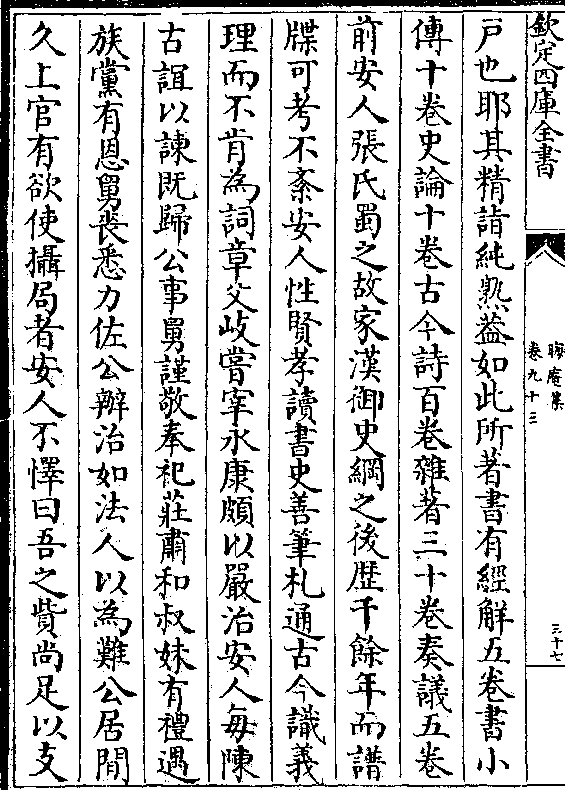 欽定四庫全書
晦庵集
卷九十三
三十七
戸也耶其精詣純熟葢如此所著書有經解五卷書小
傳十卷史論十卷古今詩百卷雜著三十卷奏議五卷
前安人張氏蜀之故家漢御史綱之後歴千餘年而譜
牒可考不紊安人性賢孝讀書史善筆札通古今識義
理而不肯為詞章父岐嘗宰永康頗以嚴治安人每陳
古誼以諫既歸公事舅謹敬奉祀莊肅和叔妹有禮遇
族黨有恩舅喪悉力佐公辦治如法人以為難公居閒
久上官有欲使攝局者安人不懌曰吾之貲尚足以支